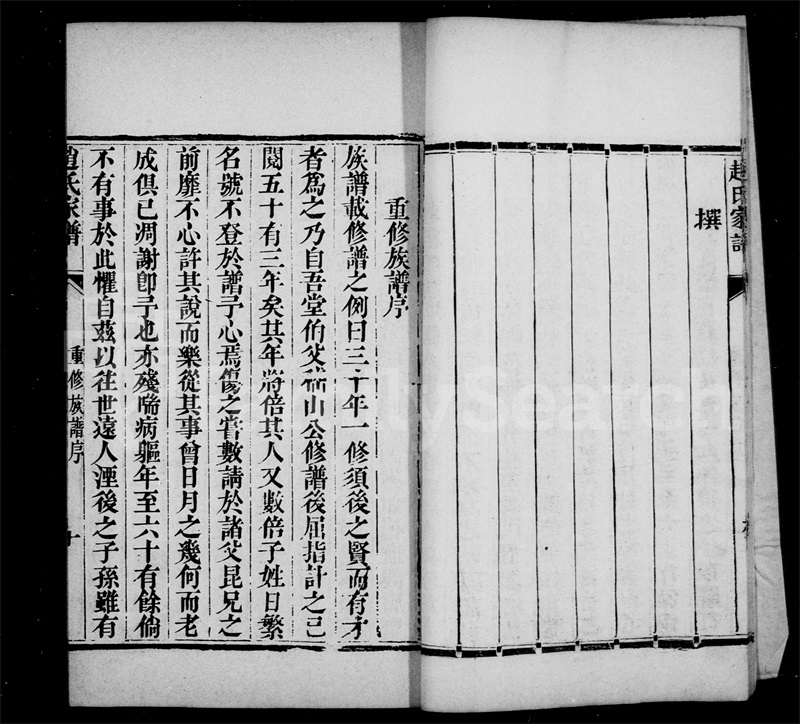 趙氏家譜
撰
重修族譜序
族譜載修譜之例曰三十年一修須後之賢而有才
者為之乃自吾堂伯父瑞山公修譜後屈指計之已
閱五十有三年矣其年將倍其人又數倍子姓日繁
名號不登於譜予心焉傷之嘗數請於諸父昆兄之
前靡不心許其說而樂從其事曾日月之幾何而老
成俱已凋謝卽予也亦殘喘病軀年至六十有餘倘
不有事於此懼自茲以往世遠人湮後之子孫雖有
趙氏家譜 重修族譜序 十
FamilySearch